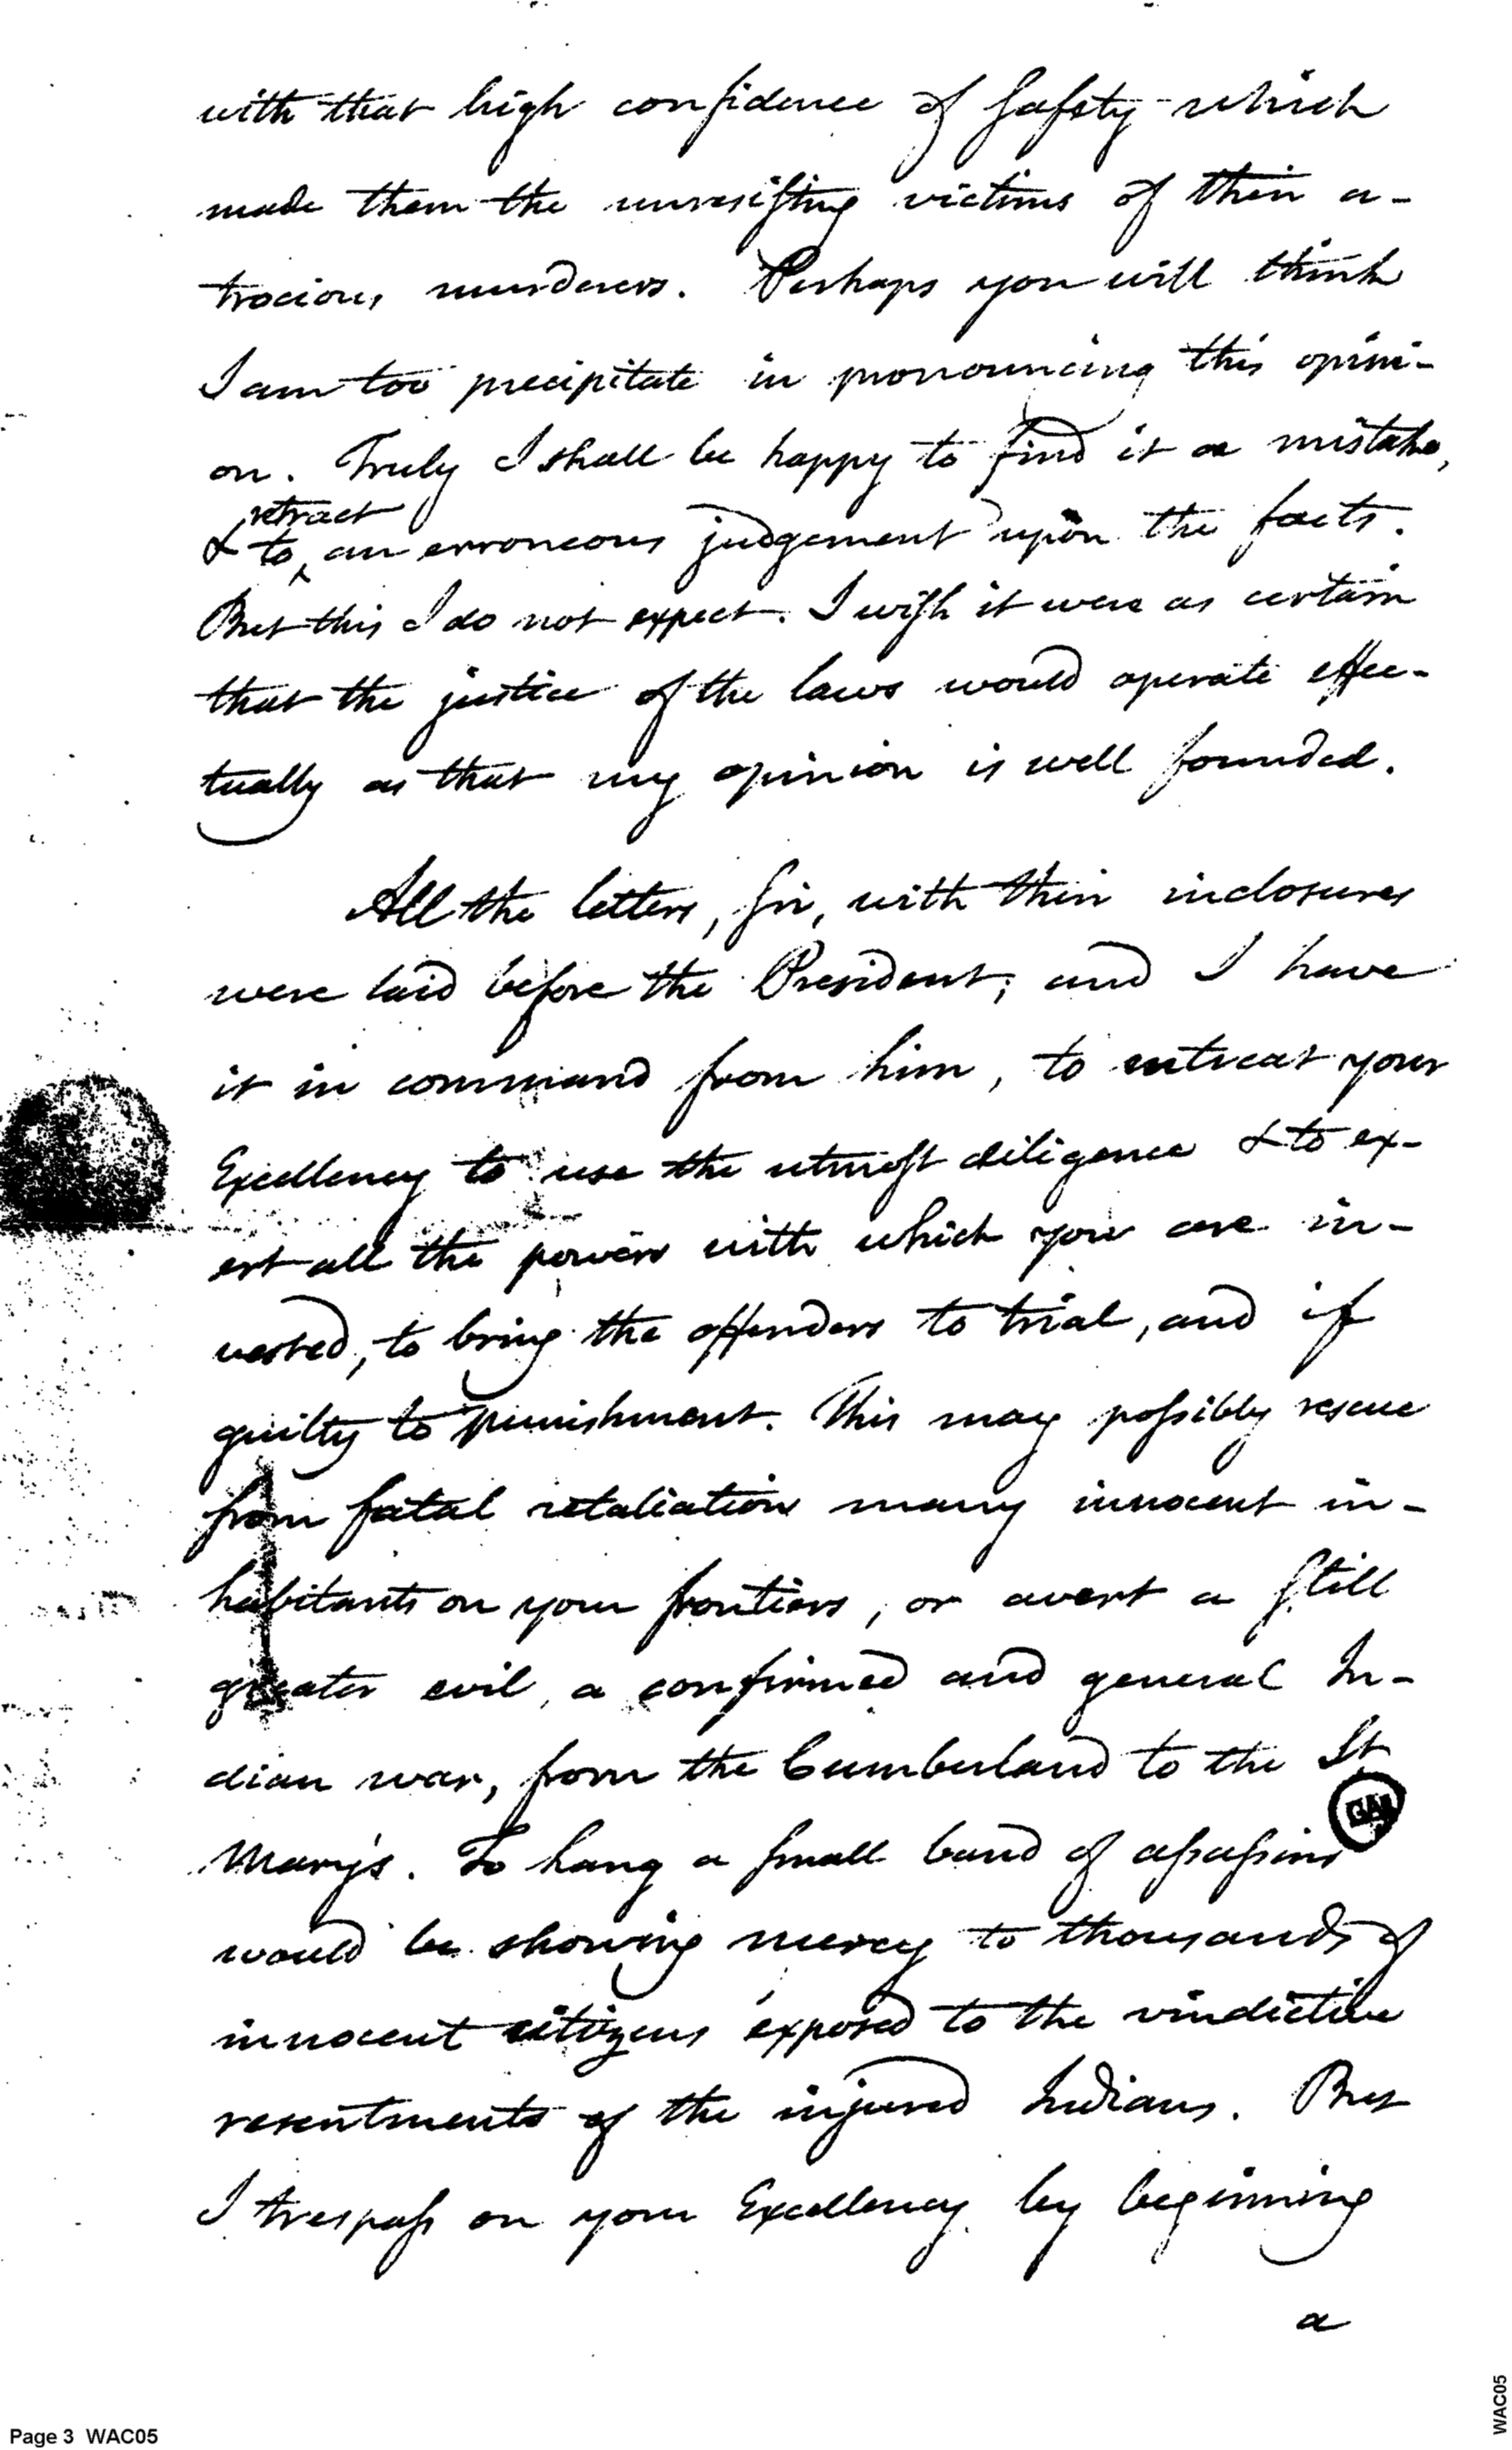 with that high confidence of safety which
made them the unresisting victims of their a-
trocious murderers. Perhaps you will think
I am too precipitate in pronouncing this opini-
on. Truly I shall be happy to find it a mistake,
retract
& to ^ an erroneous judgement upon the facts.
But this I do not expect. I wish it were as certain
that the justice of the laws would operate effec-
tually as that my opinion is well founded.
All the letters, sir, with their inclosures
were laid before the President; and I have
it in command from him, to intreat your
Excellency to use the utmost diligence & to ex-
ert all the powers with which you are in-
vested, to bring the offenders to trial, and if
guilty to punishment. This may possibly rescue
from fatal retaliation many innocent in-
habitants on your frontiers, or avert a still
greater evil, a confirmed and general In-
dian war, from the Cumberland to the St.
Mary's. To hang a small band of assassins
would be showing mercy to thousands of
innocent citizens exposed to the vindictive
resentments of the injured Indians. But
I trespass on your Excellency by beginning
a
Page 3 WAC05
WAC05